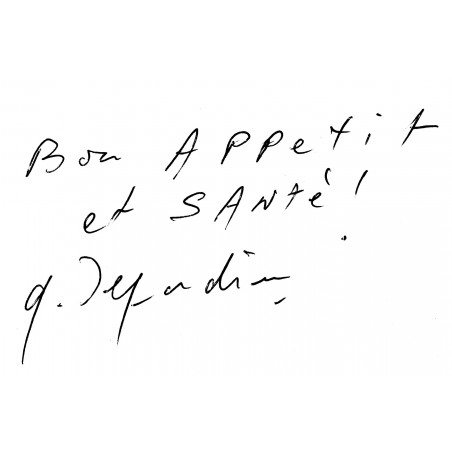 Bon APPetit
et SANté !